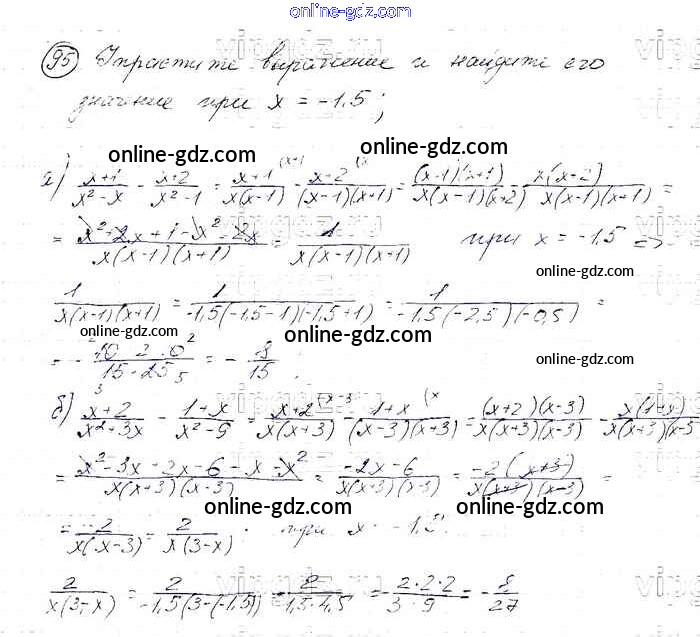 online-gdz.com
95 Упростите выражение и найдите его
значение при x = -1,5;
online-gdz.com
а) (x+1)/(x²-x) - (x+2)/(x²-1) = (x+1)/(x(x-1)) - (x+2)/((x-1)(x+1)) = ((x+1)(x+1))/(x(x-1)(x+2)) - x(x+2)/(x(x-1)(x+1)) =
= (x²+2x+1-x²-2x)/(x(x-1)(x+1)) = 1/(x(x-1)(x+1)) при x = -1,5 =>
online-gdz.com
1/(x(x-1)(x+1)) = 1/(-1,5(-1,5-1)(-1,5+1)) = 1/(-1,5(-2,5)(-0,5)) =
online-gdz.com online-gdz.com
= - = - 8/15.
online-gdz.com
б) (x+2)/(x²+3x) - (1+x)/(x²-9) = (x+2)/(x(x+3)) - (1+x)/((x-3)(x+3)) = ((x+2)(x-3))/(x(x+3)(x-3)) - x(1+x)/(x(x+3)(x-3
online-gdz.com online-gdz.com
= (x²-3x+2x-6-x-x²)/(x(x+3)(x-3)) = (-2x-6)/(x(x+3)(x-3)) = -2(x+3)/(x(x+3)(x-3)) =
online-gdz.com online-gdz.com
= -2/(x(x-3)) = 2/(x(3-x)). при x = -1,5.
2/(x(3-x)) = 2/(-1,5(3-(-1,5))) = 2/(-1,5·4,5) = -(2·2·2)/(3·9) = -8/27
online-gdz.com